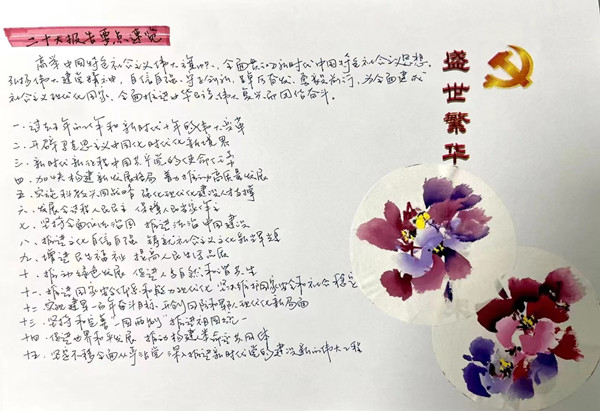 二十大报告要点导览
高举中国特色社会主义伟大旗帜、全面贯彻新时代中国特色社会主义思想,
弘扬伟大建党精神,自信自强、守正创新,踔厉奋发、勇毅前行,为全面建设
社会主义现代化国家、全面推进中华民族伟大复兴而团结奋斗。
一、过去五年的工作和新时代十年的伟大变革
二、开辟马克思主义中国化时代化新境界
三、新时代新征程中国共产党的使命任务
四、加快构建新发展格局 着力推动高质量发展
五、实施科教兴国战略 强化现代化建设人才支撑
六、发展全过程人民民主 保障人民当家作主
七、坚持全面依法治国 推进法治中国建设
八、推进文化自信自强 铸就社会主义文化新辉煌
九、增进民生福祉 提高人民生活品质
十、推动绿色发展 促进人与自然和谐共生
十一、推进国家安全体系和能力现代化 坚决维护国家安全和社会稳定
十二、实现建军一百年奋斗目标 开创国防和军队现代化新局面
十三、坚持和完善“一国两制” 推进祖国统一
十四、促进世界和平发展 推动构建人类命运共同体
十五、坚定不移全面从严治党 深入推进新时代党的建设新的伟大工程
盛世繁华